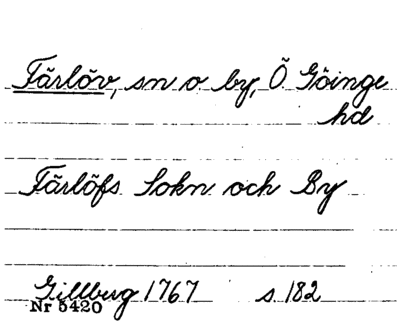 Färlöv, sn o by, Ö Göinge
hd
Färlöfs Sokn och By
Gillberg 1767 s 182
Nr 5420